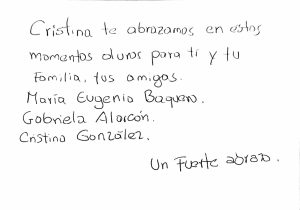 Cristina te abrazamos en estos
momentos duros para ti y tu
Familia, tus amigos.
María Eugenia Baquero.
Gabriela Alarcón.
Cristina González.
Un Fuerte abrazo.